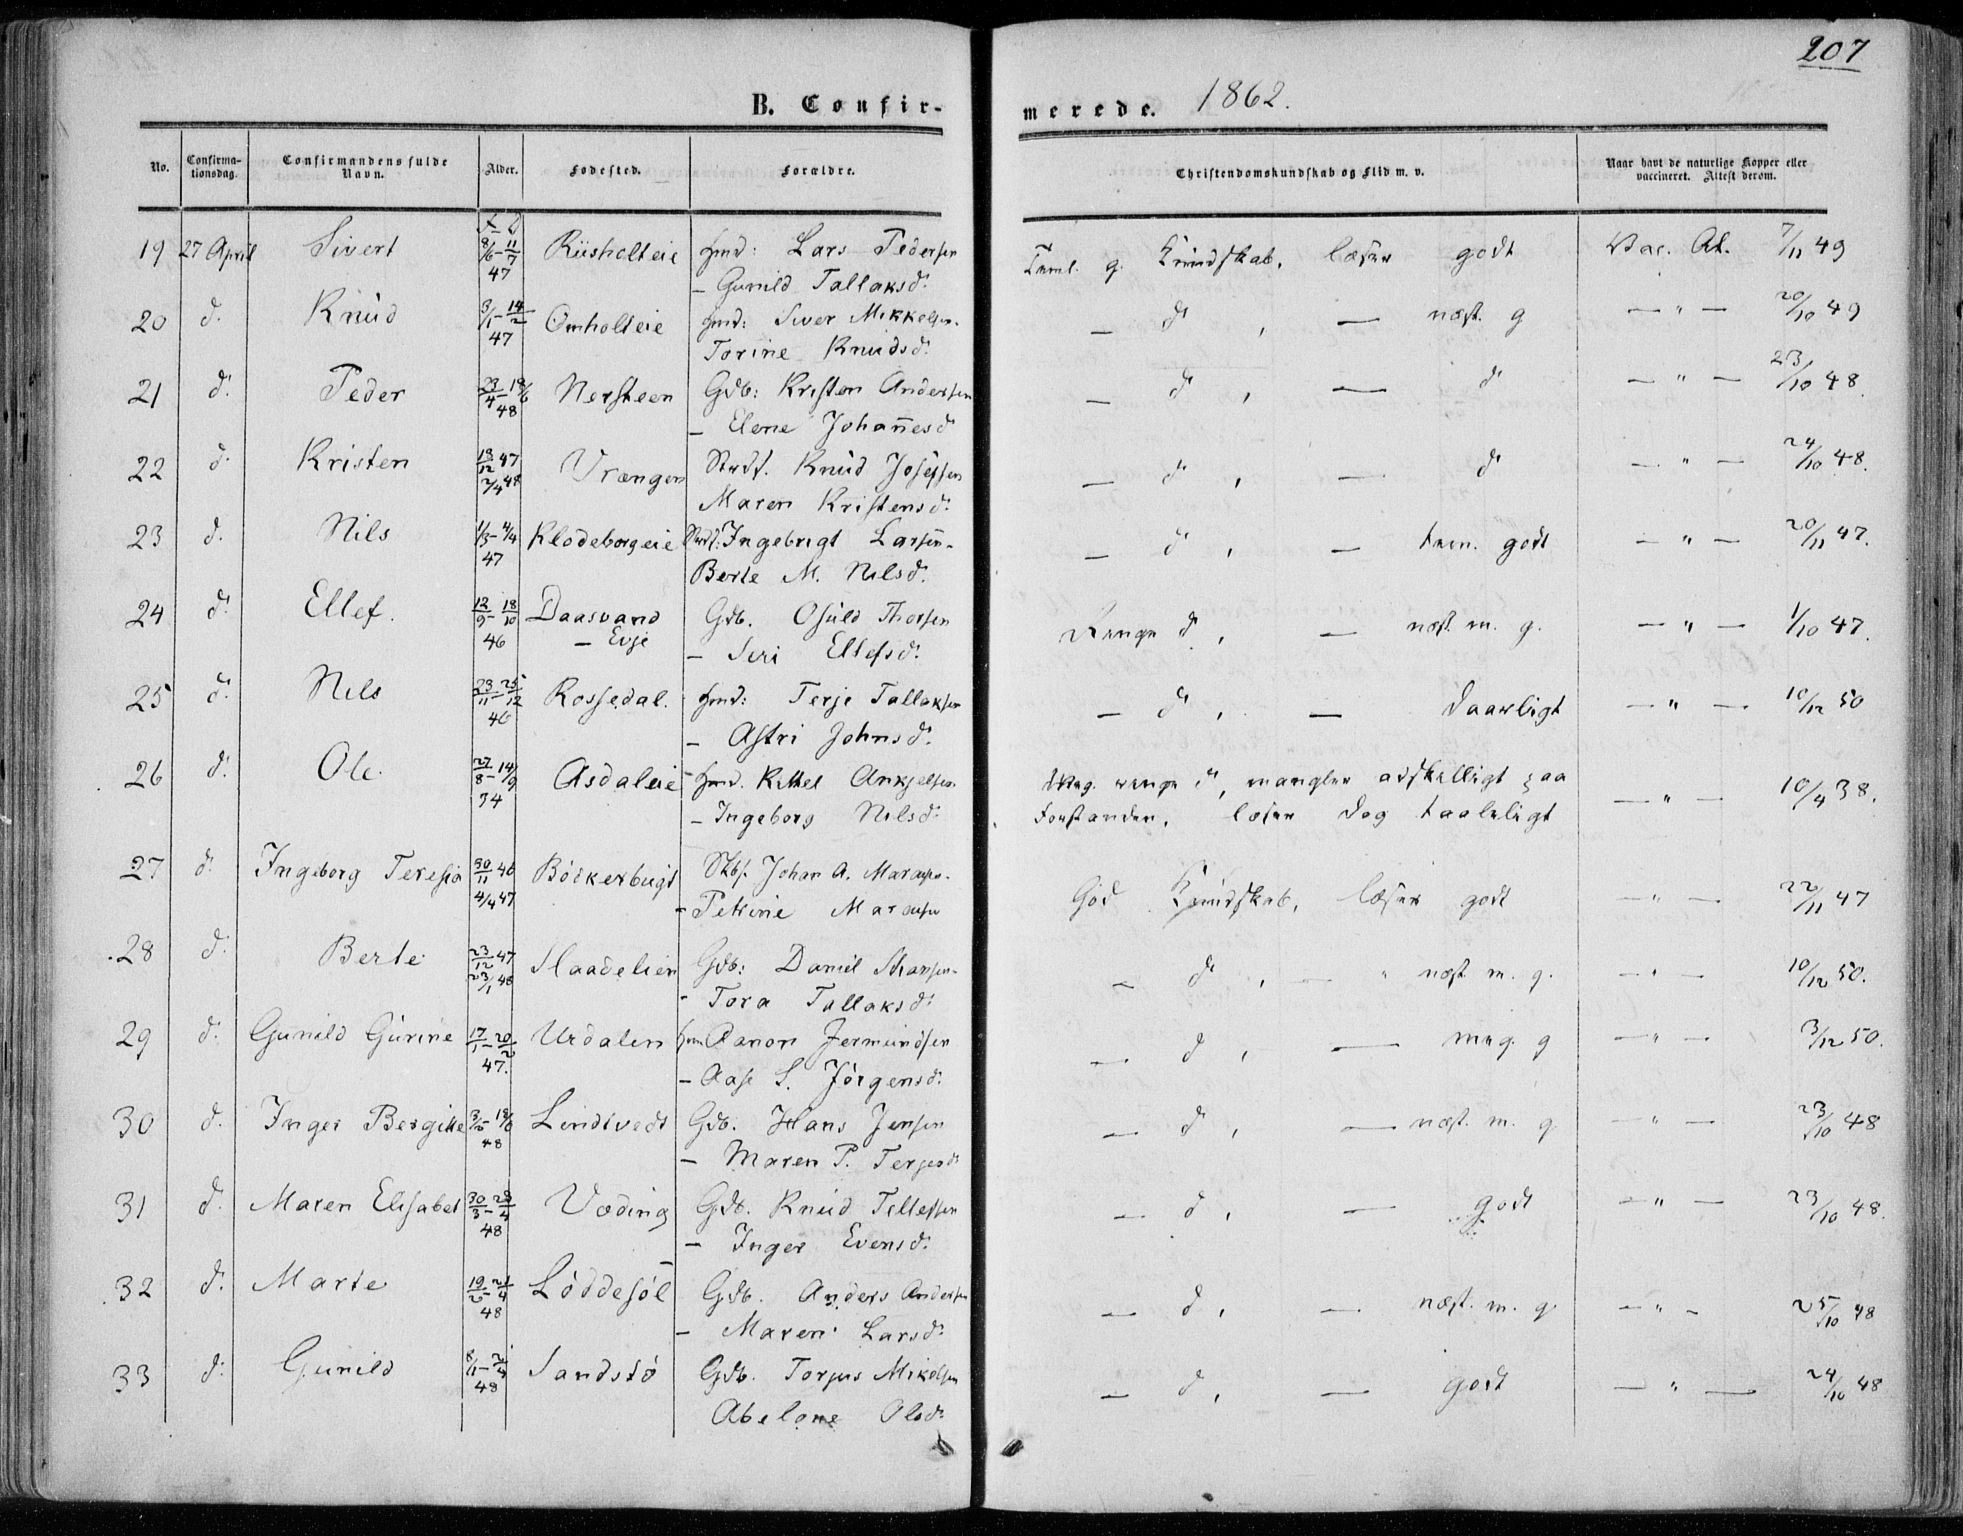 207
B. Confirmerede. 1862.
No. Confirmationsdag. Confirmandens fulde Navn. Alder. Fødested. Forældre. Christendomskundskab og Flid m. v. Naar havt de naturlige Kopper eller vaccineret. Attest derom.
19 27 April Sivert 8/6 - 11/7 47 Riisholteie Hmd: Lars Pedersen Teml. g. Kundskab, læser godt Vac. At. 7/11 49
- Gunild Tallaksd.
20 d. Knud 3/1 - 14/2 47 Omholteie Hmd: Siver Mikkelsen - d , - næst. g - " - 20/10 49
Torine Knudsd.
21 d. Peder 23/4 - 18/6 48 Nersteen Gdb: Kristen Andersen - d , - d - " - 23/10 48.
- Elene Johannesd
22 d. Kristen 13/12 47 2/4 48 Vrængen Knud Josefsen - d , - d - " - 24/10 48.
Maren Kristensd.
23 d. Nils 1/3 - 4/4 47 Klodeborgeie Ingebrigt Larsen - d , - tem. godt - " - 20/11 47.
Berte M. Nilsd.
24 d. Ellef. 12/9 - 18/10 46 Daasvand Gdb. Osuld Thorsen Ringe d , - næst. m. g. - " - 1/10 47.
- Evje - Siri Ellefsd.
25 d. Nils 23/11 - 25/12 46 Rossedal. Hmd: Terje Tallaksen - d , - daarligt - " - 10/12 50
- Astri Johnsd.
26 d. Ole. 27/8 - 14/9 34 Asdaleie Hmd. Kittel Ankjelsen Meg. ringe d, mangler adskelligt paa - " - 10/4 38.
- Ingeborg Nilsd. Forstanden, læser dog taaleligt
27 d. Ingeborg Teresia 30/11 46 4/4 47 Böckerbugt Skbf. Johan A. God Kundskab, læser godt - " - 22/11 47
- Petrine
28 d. Berte 23/12 47 23/1 48 Haadelien Gdb: Daniel - d , - " næst m. g. - " - 10/12 50.
- Tora Tallaksd.
29 d. Gunild Gurine 17/1 - 20/2 47. Urdalen Hmd Aanon Jermundsen - d , - meg. g - " - 3/12 50.
- Aase S. Jörgensd.
30 d. Inger Bergitte 48 Lindtvedt Gdb. Hans Jensen - d , - næst. m. g - " - 23/10 48
- Maren P. Terjesd.
31 d. Maren Elisabet 30/3 - 24/4 48 Væding Gdb. Knud Tellefsen - d , - godt - " - 23/10 48.
- Inger Evensd.
32 d. Marte 19/2 - 24/4 48 Löddesöl Gdb. Anders Andersen - d , - næst. m. g. - " - 25/10 48
- Maren Larsd.
33 d. Gunild 48 Sandstö Gdb. Torjus Mikelsen - d , - godt - " - 24/10 48
Abelone Olsd.